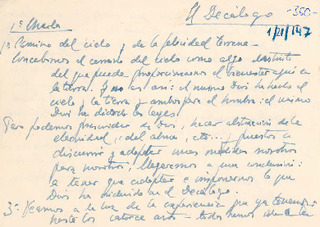 El Decálogo -350-
1ª Charla 1/II/147
1º Camino del cielo y de la felicidad terrena.
Concebimos el camino del cielo como algo distinto
del que puede proporcionarnos el bienestar aquí en
la tierra. Y no es así: el mismo Dios ha hecho el
cielo y la tierra y ambos para el hombre: el mismo
Dios ha dictado las leyes.
Pero podemos prescindir de Dios, hacer abstracción de la
eternidad, del alma, etc..., puestos a
discurrir y adoptar unas medidas nosotros
para nosotros, llegaremos a una conclusión:
a tener que adoptar e imponernos lo que
Dios ha dictado en el Decálogo.
3º Veamos a la luz de la experiencia que ya tenemos
hasta los catorce años - todos hemos